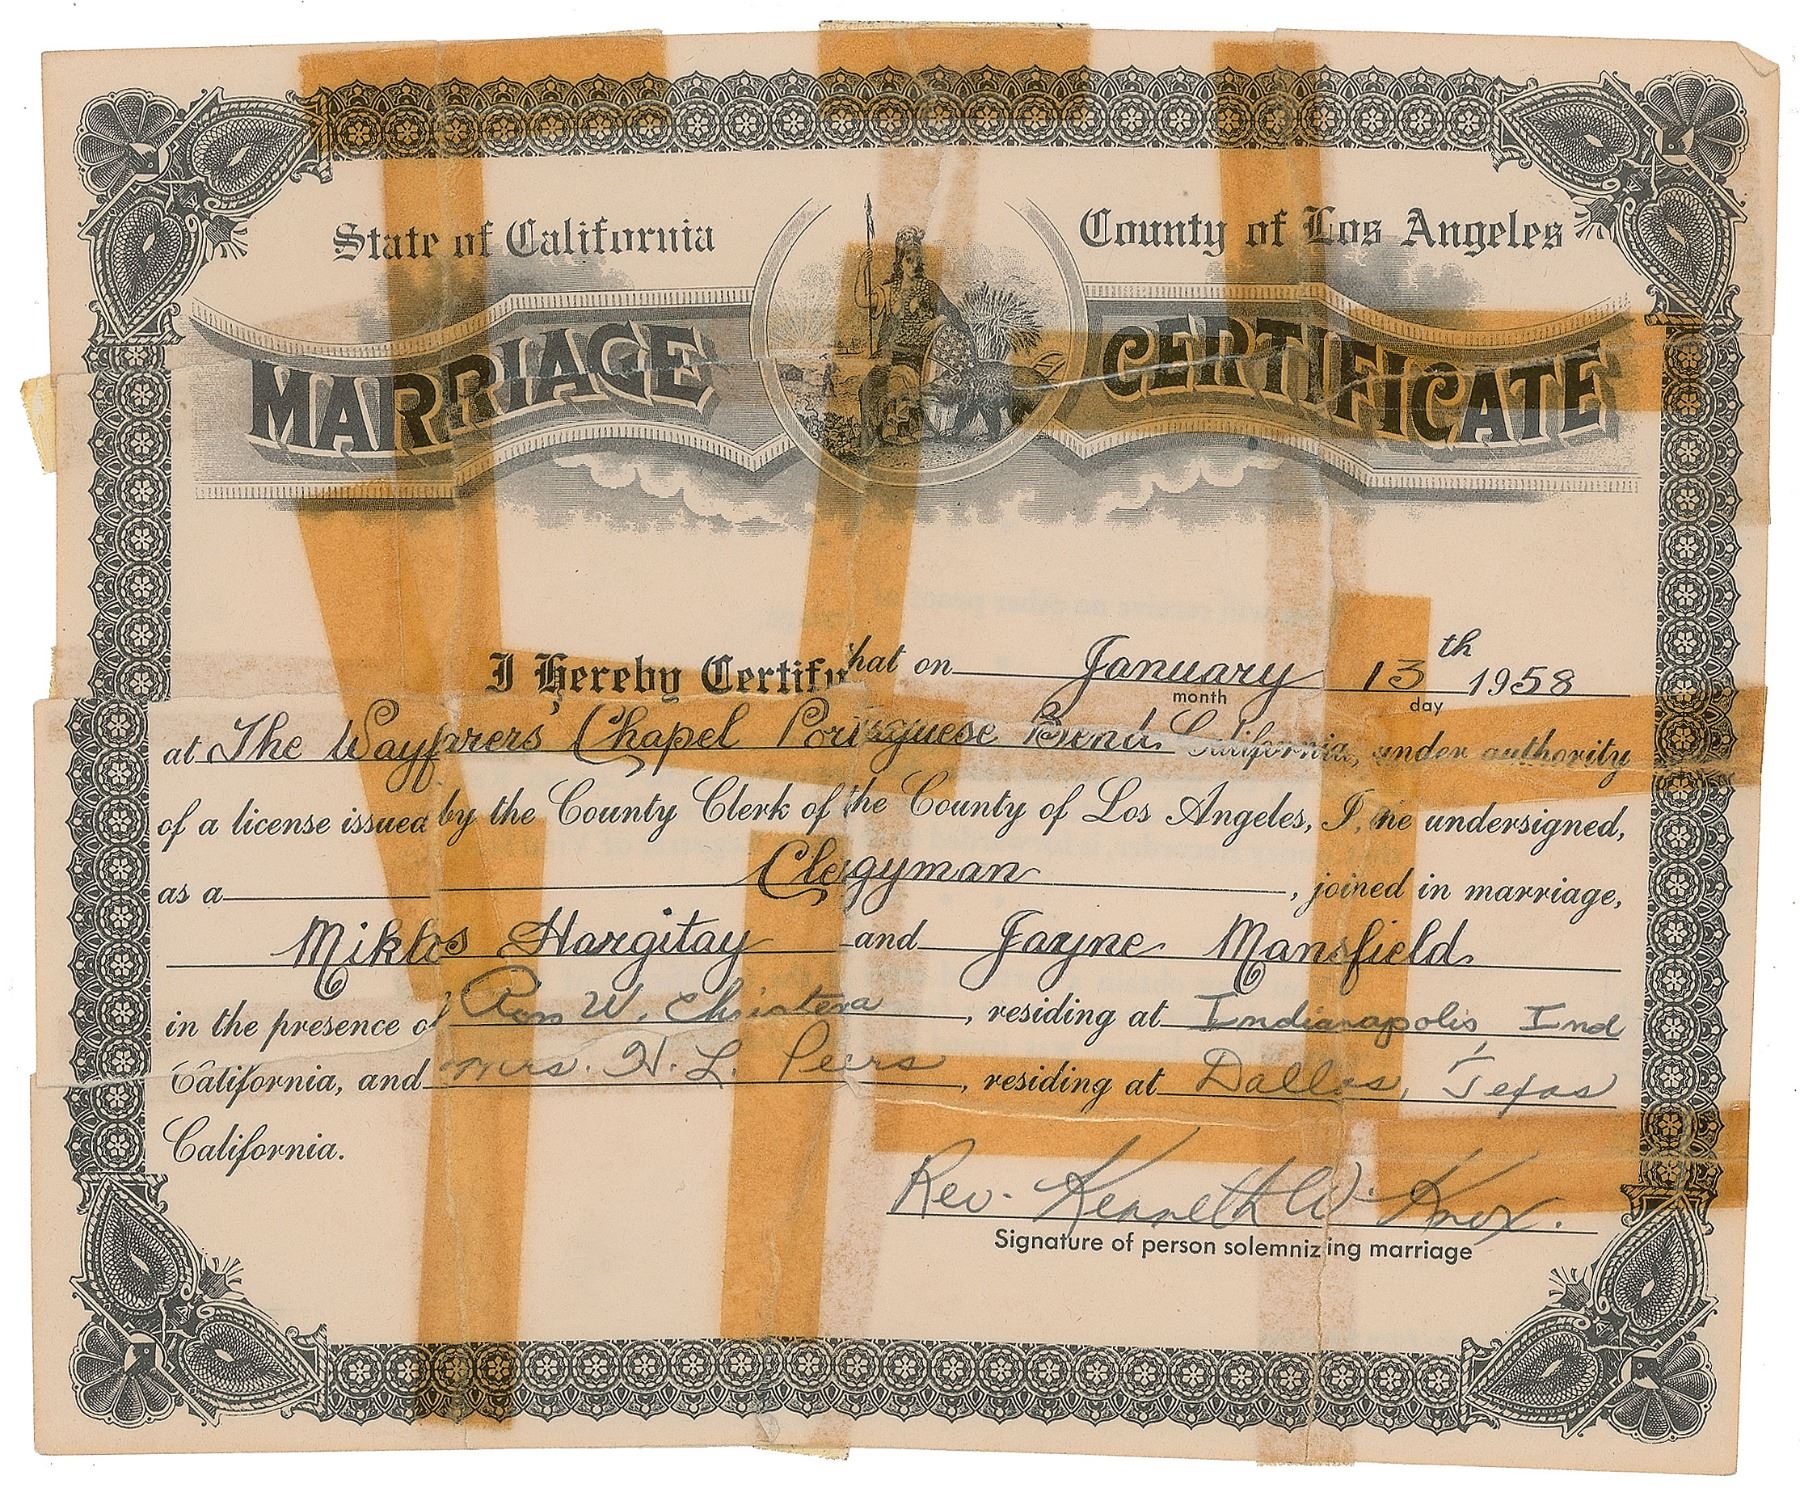 State of California County of Los Angeles
MARRIAGE CERTIFICATE
I Hereby Certify that on January 13th 1958
month day
at The Wayfarers' Chapel Portuguese Bend California, under authority
of a license issued by the County Clerk of the County of Los Angeles, I, the undersigned,
as a Clergyman, joined in marriage,
Miklos Hargitay and Jayne Mansfield
in the presence of W. , residing at Indianapolis, Ind
California, and Mrs. H. L. Peers, residing at Dallas, Texas
California.
Rev. Kenneth W. Knox.
Signature of person solemnizing marriage